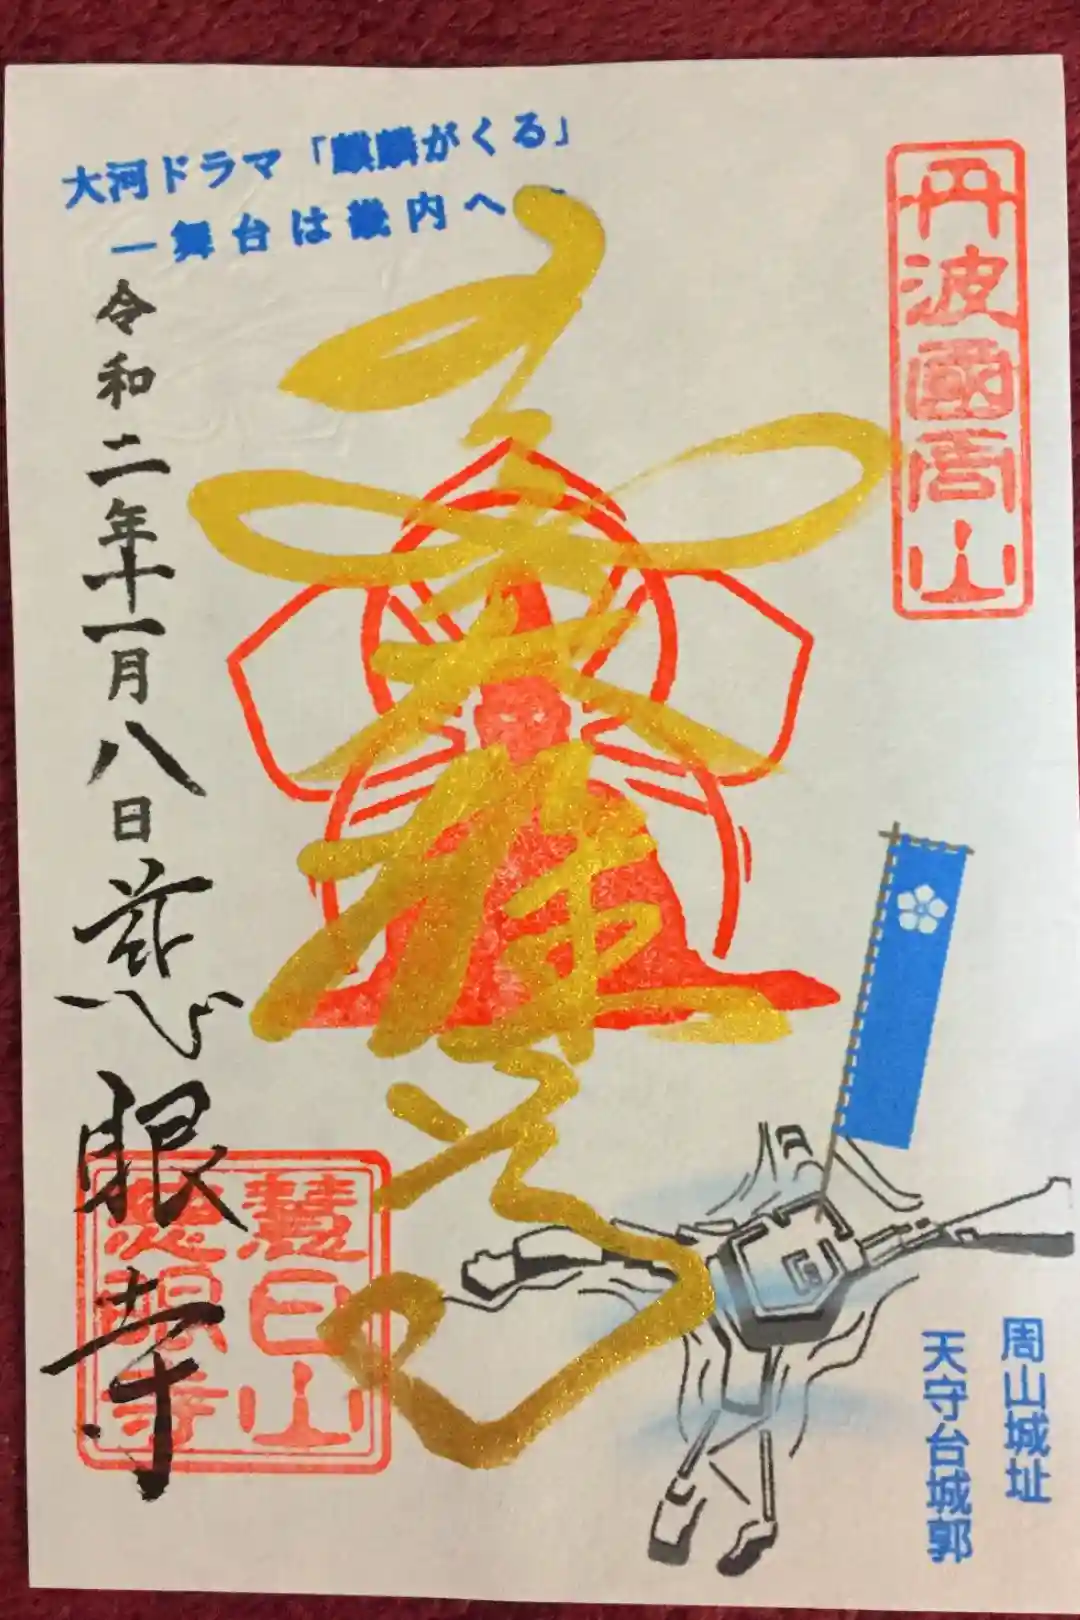 大河ドラマ「麒麟がくる」
ー舞台は畿内へー
丹波國周山
令和二年十一月八日慈眼寺
慧日山
慈眼寺
周山城址
天守台城郭